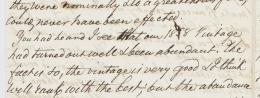 they were nominally as a great
could never have been expected.
You had heard I see that our 1858 Vintage
had turned out well & been abundant. The
racher so, the vintage is very good & I think
will rank with the best, but the abundance